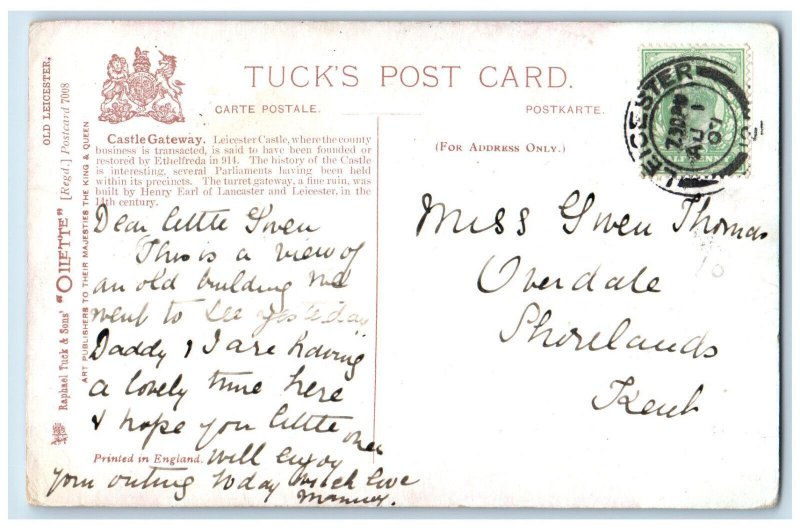 OLD LEICESTER.
Raphael Tuck & Sons' "OILETTE" [Regd.] Postcard 7008
ART PUBLISHERS TO THEIR MAJESTIES THE KING & QUEEN
TUCK'S POST CARD.
CARTE POSTALE.
POSTKARTE.
Castle Gateway. Leicester Castle, where the county
business is transacted, is said to have been founded or
restored by Ethelfreda in 914. The history of the Castle
is interesting, several Parliaments having been held
within its precincts. The turret gateway, a fine ruin, was
built by Henry Earl of Lancaster and Leicester, in the
14th century.
(FOR ADDRESS ONLY.)
Dear little Gwen
This is a view of
an old building we
went to see yesterday
Daddy & I are having
a lovely time here
& hope you little ones
Printed in England.
will enjoy
your outing today much love
Mummy.
Miss Gwen Thomas
Overdale
Shorelands
Kent
LEICESTER
7.30 PM
AU 1
07
HALFPENNY